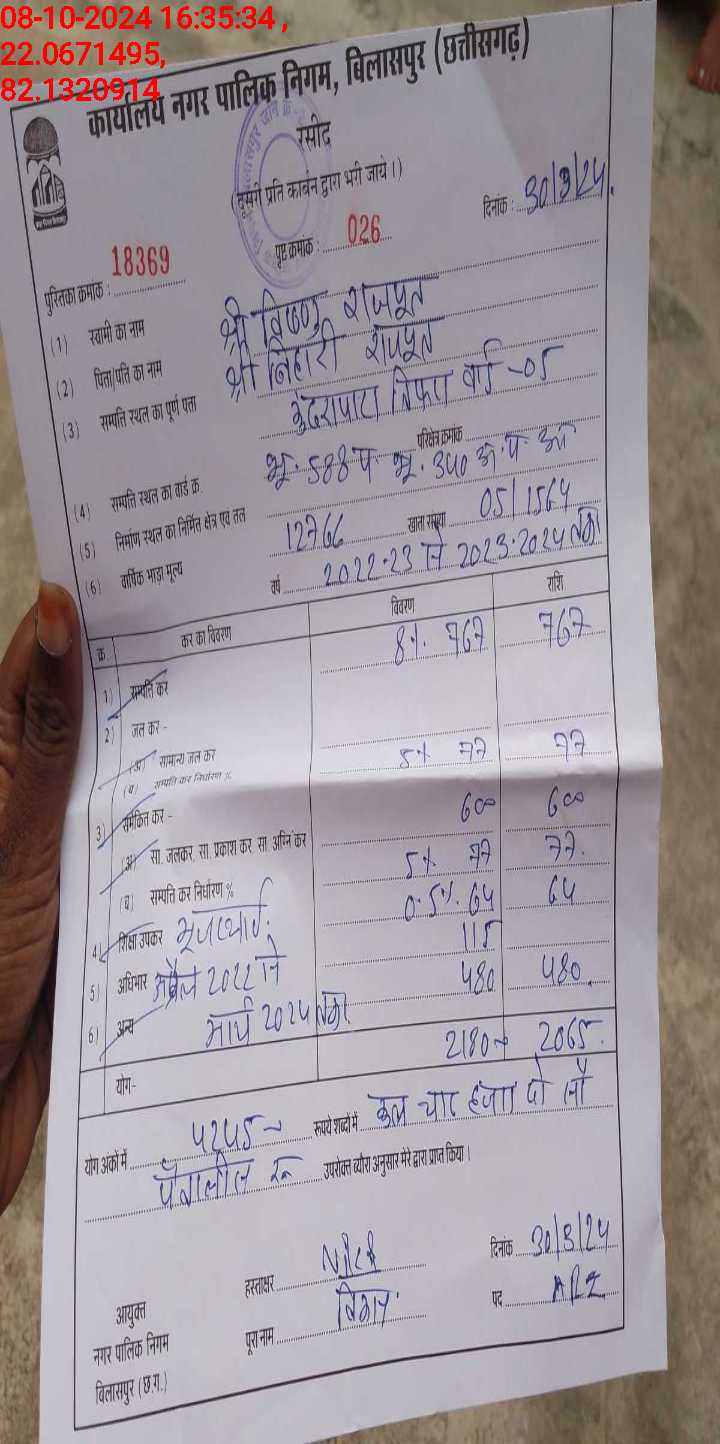 08-10-2024 16:35:34 ,
22.0671495,
82.1320914
कार्यालय नगर पालिक निगम, बिलासपुर (छत्तीसगढ़)
रसीद
(दूसरी प्रति कार्बन द्वारा भरी जाये।)
दिनांक : 30/3/24
पुस्तिका क्रमांक : 18369 पृष्ट क्रमांक : 026
(1) स्वामी का नाम श्री विष्णु राजपूत
(2) पिता/पति का नाम श्री बिहारी राजपूत
(3) सम्पत्ति स्थल का पूर्ण पता वार्ड -05
(4) सम्पत्ति स्थल का वार्ड क्र. परिक्षेत्र क्रमांक
भू. 588 प भू. 340
(5) निर्माण स्थल का निर्मित क्षेत्र एवं तल
(6) वार्षिक भाड़ा मूल्य 12766 खाता संख्या 05/1564
वर्ष 2022-23 से 2023-2024 तक
क्र. कर का विवरण विवरण राशि
1) सम्पत्ति कर 8%. 767 767
2) जल कर -
(अ) सामान्य जल कर
(ब) सम्पत्ति कर निर्धारण % 5% 77 77
3) समेकित कर - 600 600
(अ) सा. जलकर, सा. प्रकाश कर, सा. अग्नि कर
(ब) सम्पत्ति कर निर्धारण % 5% 77 77.
4) शिक्षा उपकर 0.5%. 64 64
5) अधिभार अप्रैल 2022 से 115
6) अन्य मार्च 2024 तक 480 480
योग- 2180 2065
योग अंकों में 4245 रूपये शब्दों में कुल चार हजार दो सौ
पैंतालीस रू उपरोक्त ब्यौरा अनुसार मेरे द्वारा प्राप्त किया।
हस्ताक्षर दिनांक 30/3/24
पूरा नाम पद ARI
आयुक्त
नगर पालिक निगम
बिलासपुर (छ.ग.)